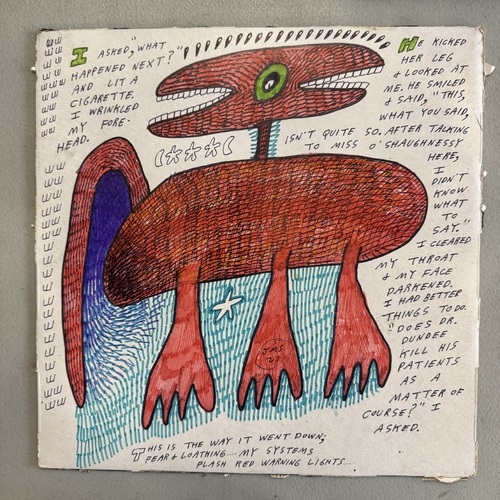 I ASKED, "WHAT
HAPPENED NEXT?"
AND LIT A
CIGARETTE.
I WRINKLED
MY FORE-
HEAD.
HE KICKED
HER LEG
& LOOKED AT
ME. HE SMILED
& SAID, "THIS,
WHAT YOU SAID,
ISN'T QUITE SO. AFTER TALKING
TO MISS O'SHAUGHNESSY
HERE,
I
DIDN'T
KNOW
WHAT
TO
SAY."
I CLEARED
MY THROAT
& MY FACE
DARKENED.
I HAD BETTER
THINGS TO DO.
"DOES DR.
DUNDEE
KILL HIS
PATIENTS
AS A
MATTER OF
COURSE?" I
ASKED.
THIS IS THE WAY IT WENT DOWN;
FEAR & LOATHING... MY SYSTEMS
FLASH RED WARNING LIGHTS...